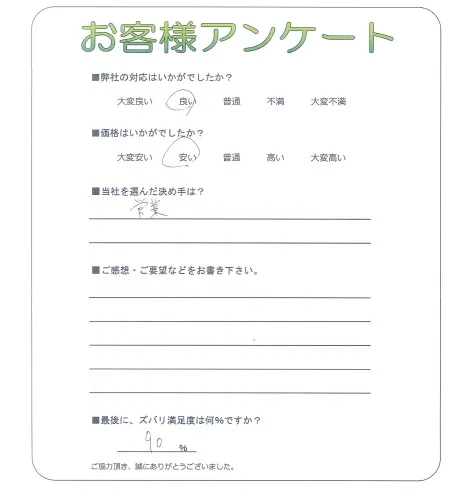 お客様アンケート
■弊社の対応はいかがでしたか？
大変良い 良い 普通 不満 大変不満
■価格はいかがでしたか？
大変安い 安い 普通 高い 大変高い
■当社を選んだ決め手は？
営業
■ご感想・ご要望などをお書き下さい。
■最後に、ズバリ満足度は何％ですか？
90 %
ご協力頂き、誠にありがとうございました。